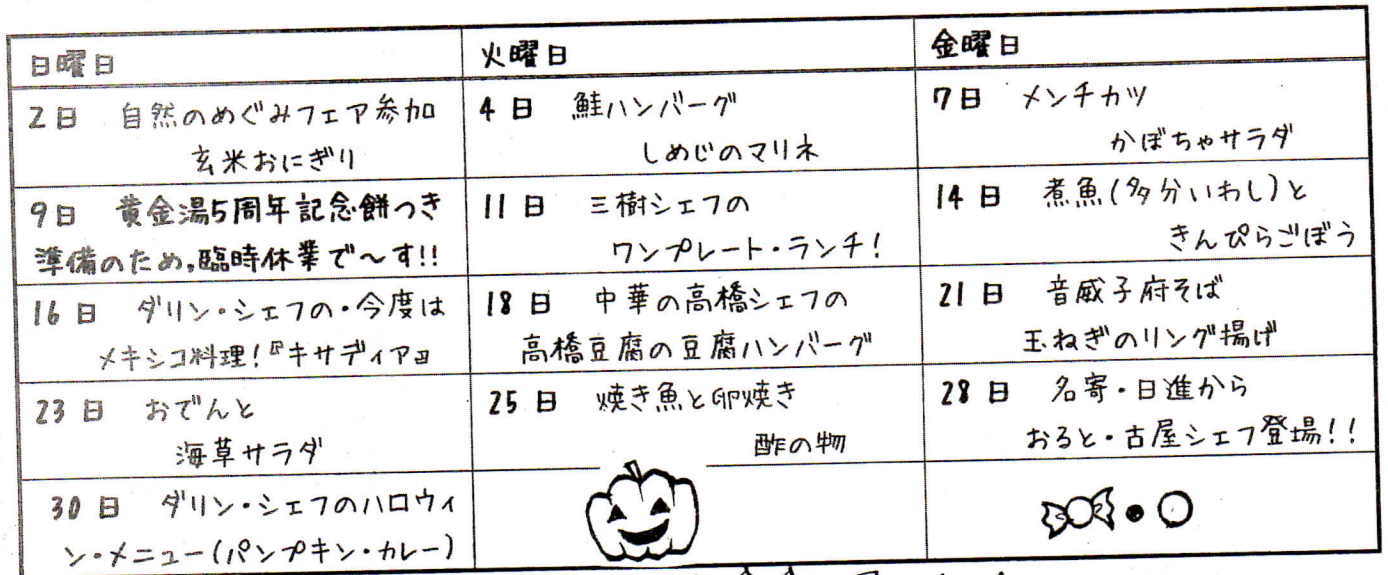 日曜日
火曜日
金曜日
2日 自然のめぐみフェア参加
玄米おにぎり
4日 鮭ハンバーグ
しめじのマリネ
7日 メンチカツ
かぼちゃサラダ
9日 黄金湯5周年記念餅つき
準備のため,臨時休業で〜す!!
11日 三樹シェフの
ワンプレート・ランチ!
14日 煮魚(多分いわし)と
きんぴらごぼう
16日 ダリン・シェフの・今度は
メキシコ料理!『キサディア』
18日 中華の高橋シェフの
高橋豆腐の豆腐ハンバーグ
21日 音威子府そば
玉ねぎのリング揚げ
23日 おでんと
海草サラダ
25日 焼き魚と卵焼き
酢の物
28日 名寄・日進から
おると・古屋シェフ登場!!
30日 ダリン・シェフのハロウィ
ン・メニュー(パンプキン・カレー)